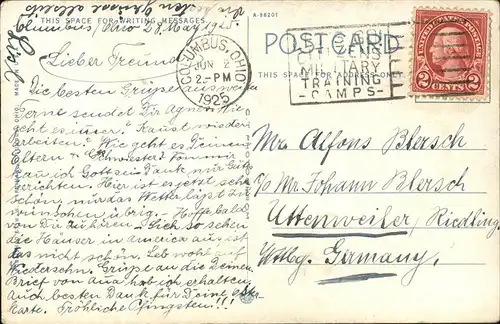 A-88207
THIS SPACE FOR WRITING MESSAGES
Columbus, Ohio 28 May 1925.
Lieber Freund
Die besten Grüße aus weiter
Ferne sendet Dir Agnes. Wie
geht es immer. Kannst wieder
arbeiten? Wie geht es Deinen
Eltern Schwester? Von mir
kann ich Gott sei Dank nur Gutes
berichten. Hier ist es jetzt sehr
schön, nur das Wetter läßt zu
wünschen übrig. Hoffe bald
von Dir zu hören. Dich so sehen
die Häuser in America aus ist
das nicht schön. Leb wohl auf
Wiedersehn. Grüße an die Deinen
Brief von Aus hab ich erhalten
Auch besten Dank für Deine
Karte. Fröhliche Pfingsten!!!
COLUMBUS, OHIO
JUN 2
2-PM
1925
POST CARD
THIS SPACE FOR ADDRESS ONLY
CITIZENS
MILITARY
TRAINING
CAMPS
UNITED STATES POSTAGE
2 CENTS 2
Mr. Alfons Blersch
c/o Mr. Johann Blersch
Uttenweiler/Riedling.
Wttbg. Germany.